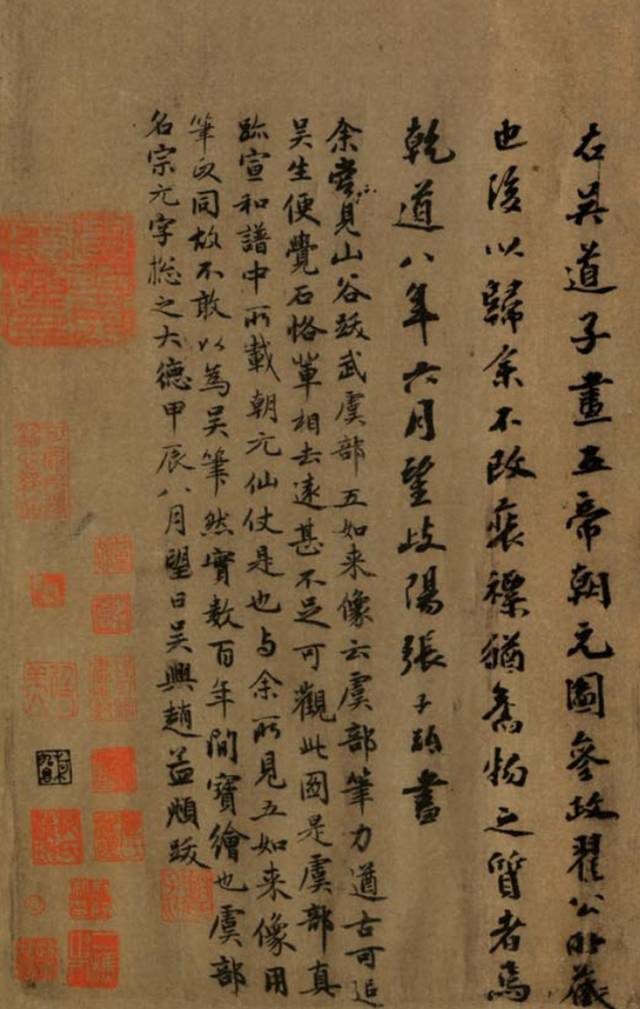 右吴道子畫五帝朝元圖参政翟公所藏
也後以歸余不改装褾猶舊物之質者焉
乾道八年六月望歧陽張子䂮書
余嘗見山谷跋武虞部五如来像云虞部筆力遒古可追
吴生便覺石恪輩相去遠甚不足可觀此圖是虞部真
跡宣和譜中所載朝元仙仗是也与余所見五如来像用
筆政同故不敢以為吴筆然實數百年間寶繪也虞部
名宗元字揔之大德甲辰八月望日吴興趙孟頫跋